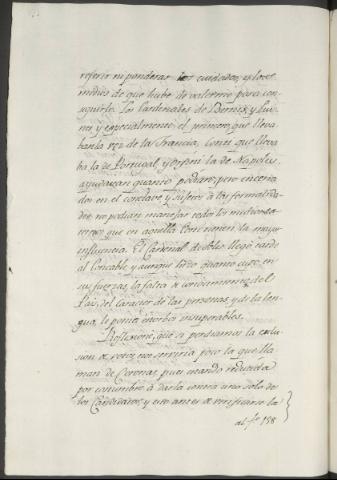 referir ni ponderar los cuidados, y los
medios de que hube de valerme para con-
seguirlo. Los Cardenales de Bernis, y Lui-
nes y especialmente el primero, que lleva-
ban la voz de la Francia, Conti que lleva-
ba la de Portugal y Orsini la de Napoles,
ayudaban quanto podian; pero encerra-
dos en el conclave, y sujetos à las formalida-
des no podian manejar todos los
que en aquella Corte tienen la mayor
influencia. El Cardenal de Solis llegó tarde
al Conclave, y aunque hizo quanto cupo en
sus fuerzas, la falta de conocimientos del
Pais, del caracter de las personas, y de la len-
gua, le ponia estorbos insuperables.
Reflexioné, que si pensabamos la exclu-
sion de votos, nos serviria poco la que lla-
man de Coronas, pues estando reducida
por costumbre à darla contra uno solo de
los Candidatos, y eso antes de verificarse la
al fº 158